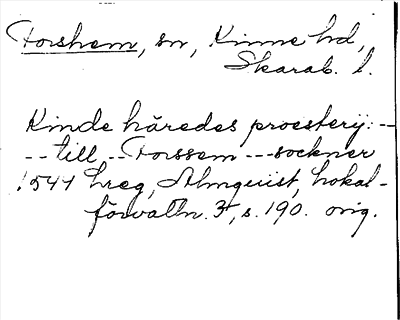 Forshem, sn, Kinne hd,
Skarab. l.
Kinde häredes proesterij: --
-- till -- Forssem --- sockner
1541 hreg, Almquist, Lokal-
förvaltn. 3, s. 190. orig.